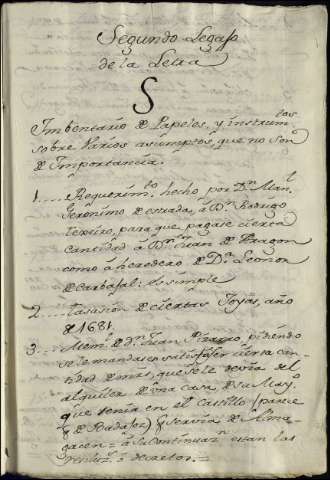 Segundo Legajo
de la Letra
S
Imbentario de Papeles, y instrumtos
sobre Varios asumptos, que no son
de Importancia.
1.... Requerimto hecho por Dn Manl
Geronimo de estrada, à Dn Rodrigo
texeiro, para que pagase cierta
cantidad à Dn Juan de Aragon
como à heredero de Da Leonor
de Carbajal: es simple
2.... tasasion de ciertas Joyas, año
de 1681.
3... Meml de Dn Juan Pizarro, pidiendo
se le mandase satisfaser cierta can-
tidad de mrs, que se le devia del
alquiler de una casa de su Mayo
que tenia en el Castillo (parese
de Badajoz) y servia de Alma-
gacen = à su continuazn estan las
decretos =